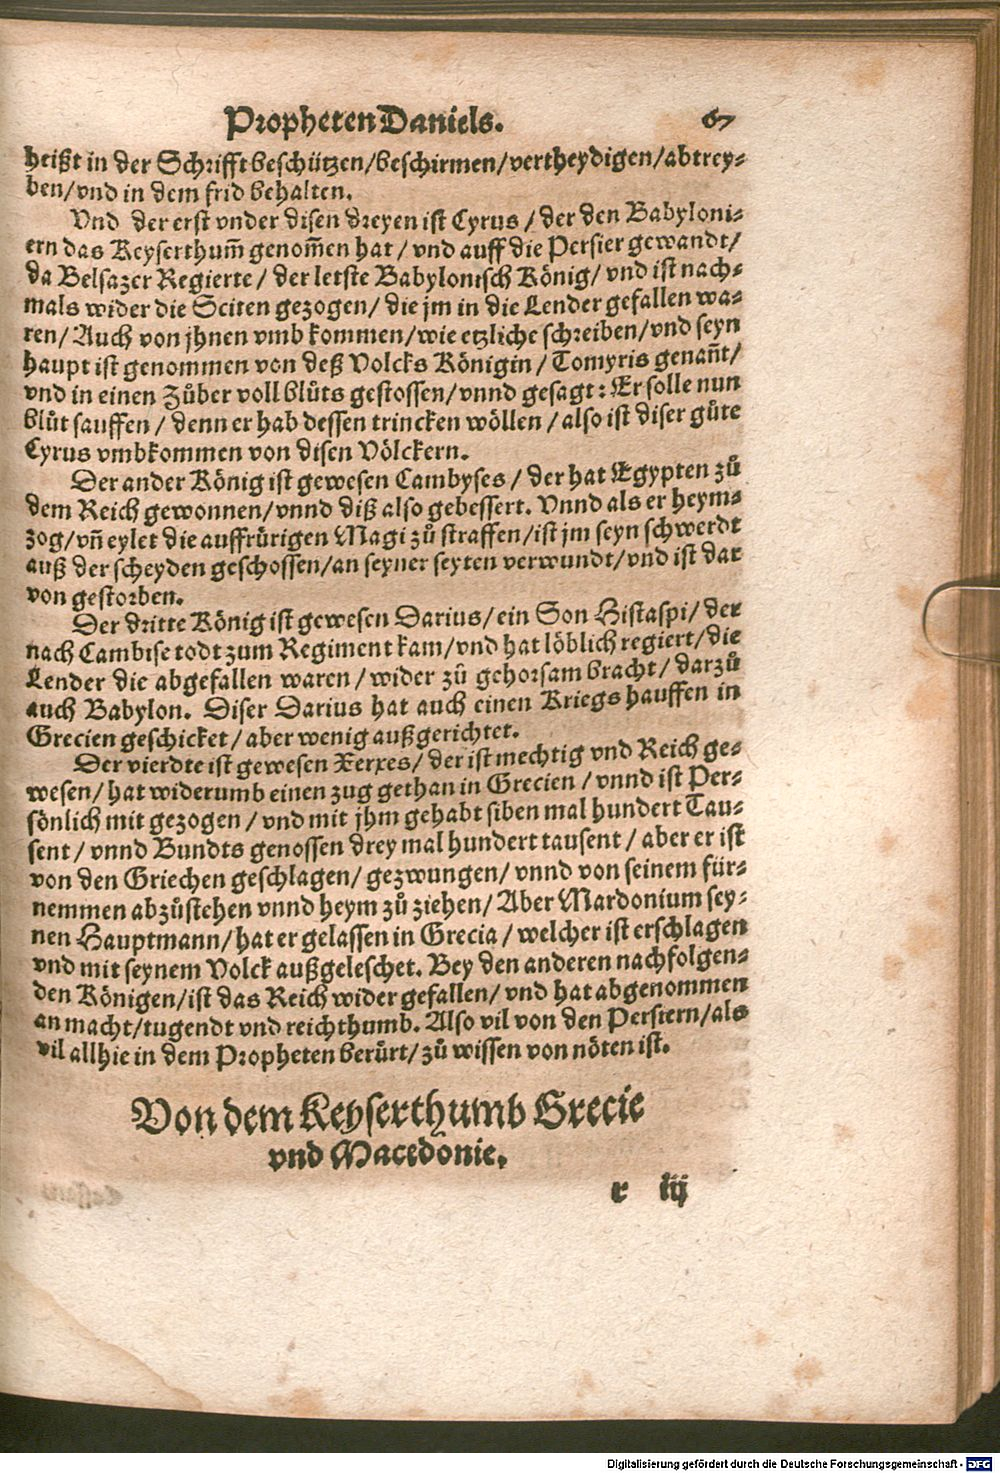 Propheten Daniels. 67
heißt in der Schrifft beschützen/beschirmen/vertheydigen/abtrey⸗
ben/vnd in dem frid behalten.
Vnd der erst vnder disen dreyen ist Cyrus/der den Babyloni⸗
ern das Keyserthum̃ genom̃en hat/vnd auff die Persier gewandt/
da Belsazer Regierte/der letste Babylonisch König/vnd ist nach⸗
mals wider die Sciten gezogen/die jm in die Lender gefallen wa⸗
ren/Auch von jhnen vmb kommen/wie etzliche schreiben/vnd seyn
haupt ist genommen von deß Volcks Königin/Tomyris genañt/
vnd in einen Zůber voll blůts gestossen/vnnd gesagt: Er solle nun
blůt sauffen/denn er hab dessen trincken wöllen/also ist diser gůte
Cyrus vmbkommen von disen Völckern.
Der ander König ist gewesen Cambyses/der hat Egypten zů
dem Reich gewonnen/vnnd diß also gebessert. Vnnd als er heym⸗
zog/vñ eylet die auffrůrigen Magi zů straffen/ist jm seyn schwerdt
auß der scheyden geschossen/an seyner seyten verwundt/vnd ist dar
von gestorben.
Der dritte König ist gewesen Darius/ein Son Histaspi/der
nach Cambise todt zum Regiment kam/vnd hat löblich regiert/die
Lender die abgefallen waren/wider zů gehorsam bracht/darzů
auch Babylon. Diser Darius hat auch einen Kriegs hauffen in
Grecien geschicket/aber wenig außgerichtet.
Der vierdte ist gewesen Xerxes/der ist mechtig vnd Reich ge⸗
wesen/hat widerumb einen zug gethan in Grecien/vnnd ist Per⸗
sönlich mit gezogen/vnd mit jhm gehabt siben mal hundert Tau⸗
sent/vnnd Bundts genossen drey mal hundert tausent/aber er ist
von den Griechen geschlagen/gezwungen/vnnd von seinem für⸗
nemmen abzůstehen vnnd heym zů ziehen/Aber Mardonium sey⸗
nen Hauptmann/hat er gelassen in Grecia/welcher ist erschlagen
vnd mit seynem Volck außgeleschet. Bey den anderen nachfolgen⸗
den Königen/ist das Reich wider gefallen/vnd hat abgenommen
an macht/tugendt vnd reichthumb. Also vil von den Persiern/als
vil allhie in dem Propheten berůrt/zů wissen von nöten ist.
Von dem Keyserthumb Grecie
vnd Macedonie.
r iij
Digitalisierung gefördert durch die Deutsche Forschungsgemeinschaft - DFG